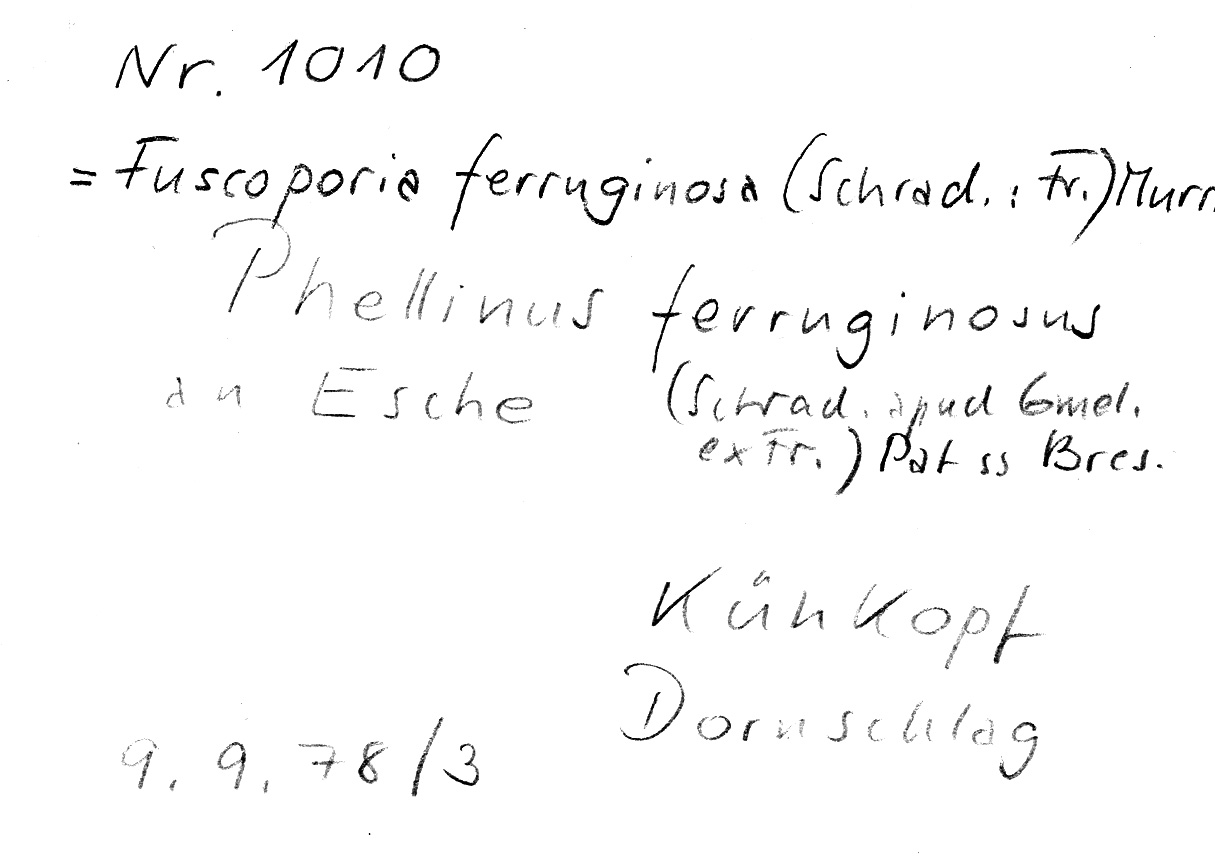 Nr. 1010
= Fuscoporia ferruginosa (Schrad. : Fr.) Murr.
Phellinus ferruginosus
an Esche (Schrad. apud Gmel.
ex Fr.) Pat ss Bres.
Kühkopf
Dornschlag
9. 9. 78/3